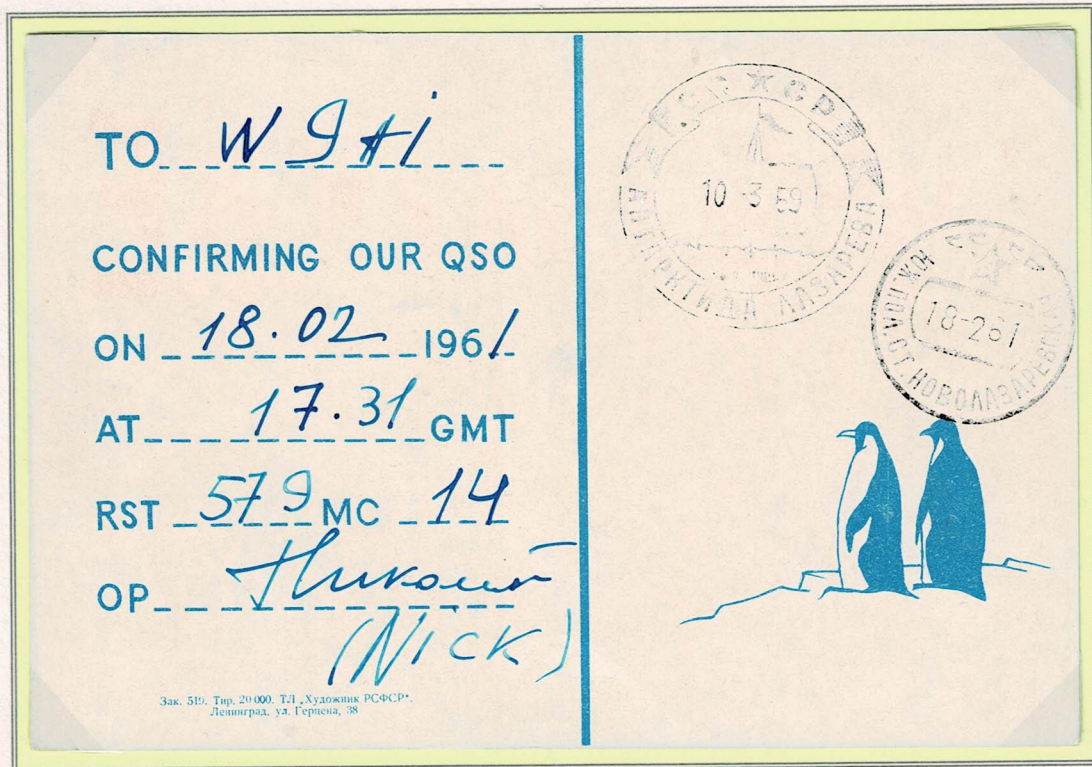 TO W9AI
CONFIRMING OUR QSO
ON 18.02 1961
AT 17.31 GMT
RST 579 MC 14
OP Николай
(NICK)
Зак. 519. Тир. 20 000. ТЛ „Художник РСФСР“.
Ленинград, ул. Герцена, 38
СССР
10 -3 59
АНТАРКТИДА ЛАЗАРЕВА
СССР
18-261
НОВОЛАЗАРЕВСКАЯ